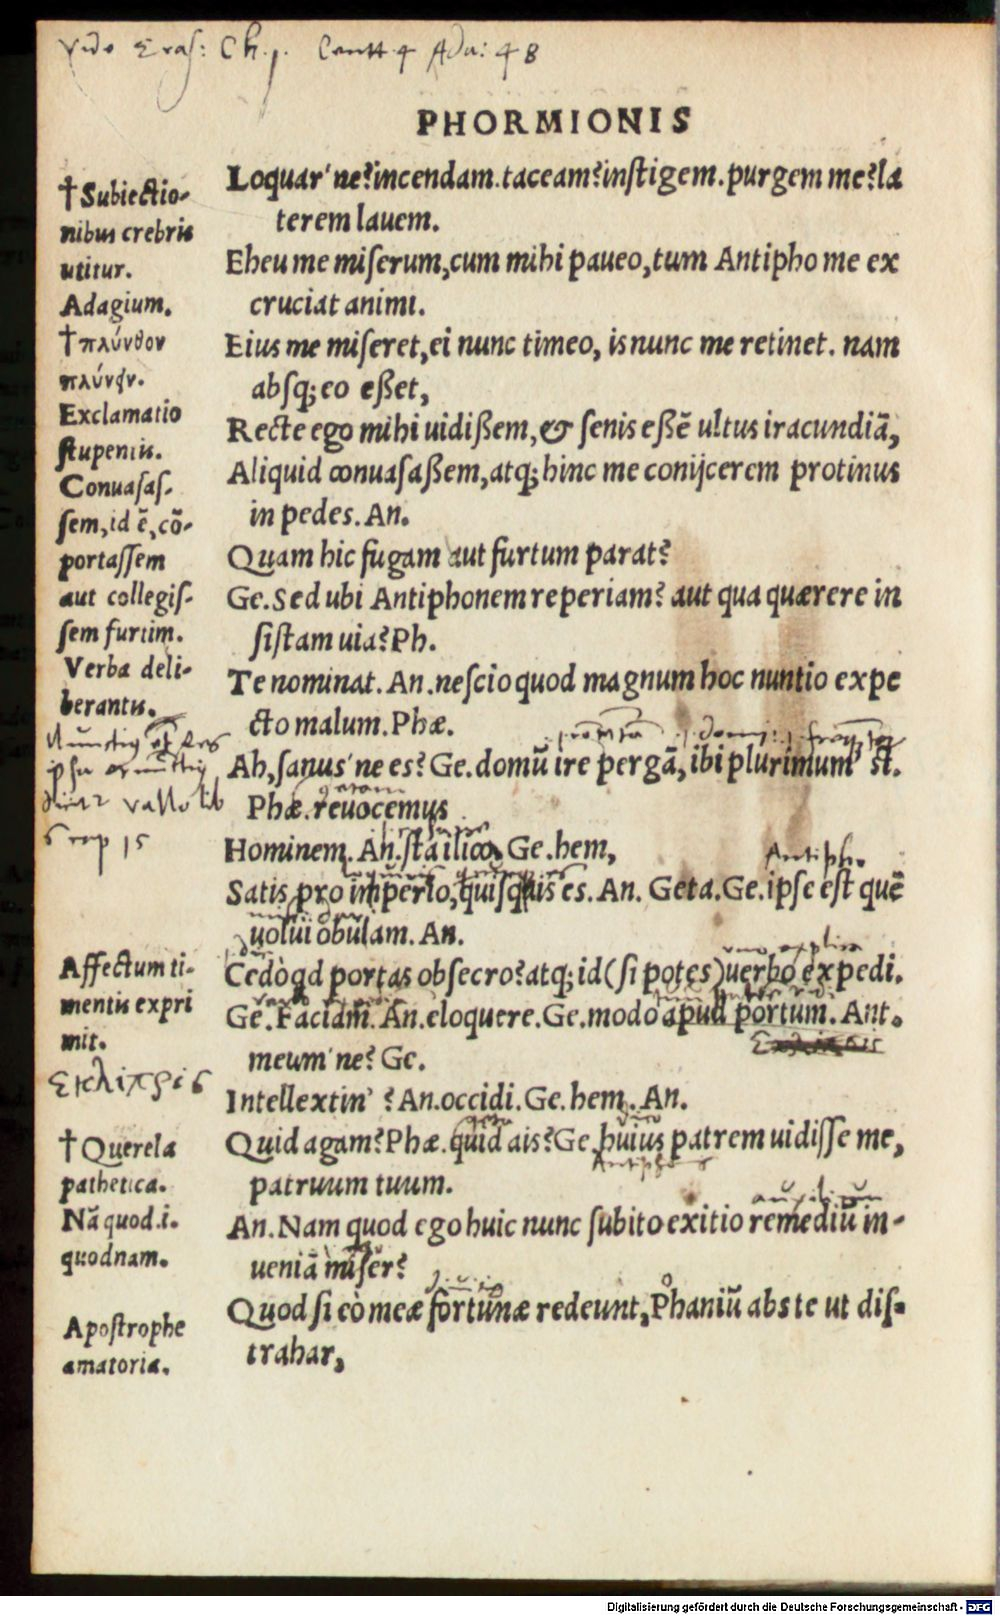 Vide Eras: Ch. 1. Cent 4 Ada: 48
PHORMIONIS
†Subiectio-
nibus crebris
utitur.
Adagium.
†πλύνθον
πλύνειν.
Exclamatio
stupentis.
Conuasas-
sem, id ē, cō-
portassem
aut collegis-
sem furtim.
Verba deli-
berantis.
Nuntius et res
ipsa & nuntius
dicitur Vallo lib
cap 15
Affectum ti-
mentis expri
mit.
†Querela
pathetica.
Nā quod .i.
quodnam.
Apostrophe
amatoria.
Loquar'ne?incendam.taceam?instigem.purgem me?la
terem lauem.
Eheu me miserum,cum mihi paueo,tum Antipho me ex
cruciat animi.
Eius me miseret,ei nunc timeo, is nunc me retinet. nam
absq; eo eßet,
Recte ego mihi uidißem,& senis eßē ultus iracundiā,
Aliquid conuasaßem,atq; hinc me conijcerem protinus
in pedes. An.
Quam hic fugam aut furtum parat?
Ge. Sed ubi Antiphonem reperiam? aut qua quærere in
sistam uia? Ph.
Te nominat. An. nescio quod magnum hoc nuntio expe
cto malum. Phæ.
Ah, sanus'ne es? Ge. domū ire pergā, ibi plurimum st.
Phæ. reuocemus
Hominem. An. sta ilico. Ge. hem,
Antiph.
Satis pro imperio, quisquis es. An. Geta. Ge. ipse est quē
uolui obuiam. An.
Cedò qd portas obsecro?atq; id (si potes) uerbo expedi.
Ge. Faciam. An. eloquere. Ge. modo apud portum. Ant.
meum'ne? Ge.
Intellextin' ? An. occidi. Ge. hem. An.
Quid agam? Phæ. quid ais? Ge. huius patrem uidisse me,
patruum tuum.
auxilium
An. Nam quod ego huic nunc subito exitio remediū in-
ueniā miser?
Quod si eò meæ fortunæ redeunt, Phaniū abs te ut dis-
trahar,
Digitalisierung gefördert durch die Deutsche Forschungsgemeinschaft - DFG